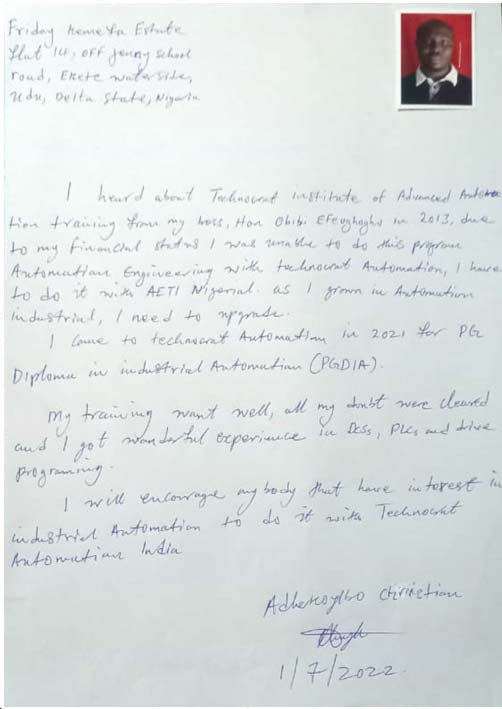 Friday Kemefa Estate
flat 14, off Jenny school
road, Ekete waterside,
Udu, Delta State, Nigeria
I heard about Technocrat institute of Advanced Automa
tion training from my boss, Hon Obibi in 2013, due
to my financial status I was unable to do this program
Automation Engineering with technocrat Automation, I have
to do it with AETI Nigeria. as I grown in Automation
industrial, I need to upgrade.
I came to technocrat Automation in 2021 for PG
Diploma in industrial Automation (PGDIA).
My training want well, all my doubt were cleared
and I got wanderful experience in DCSs, PLCs and drive
programing.
I will encourage anybody that have interest in
industrial Automation to do it with Technocrat
Automation India
Christian
1/7/2022.